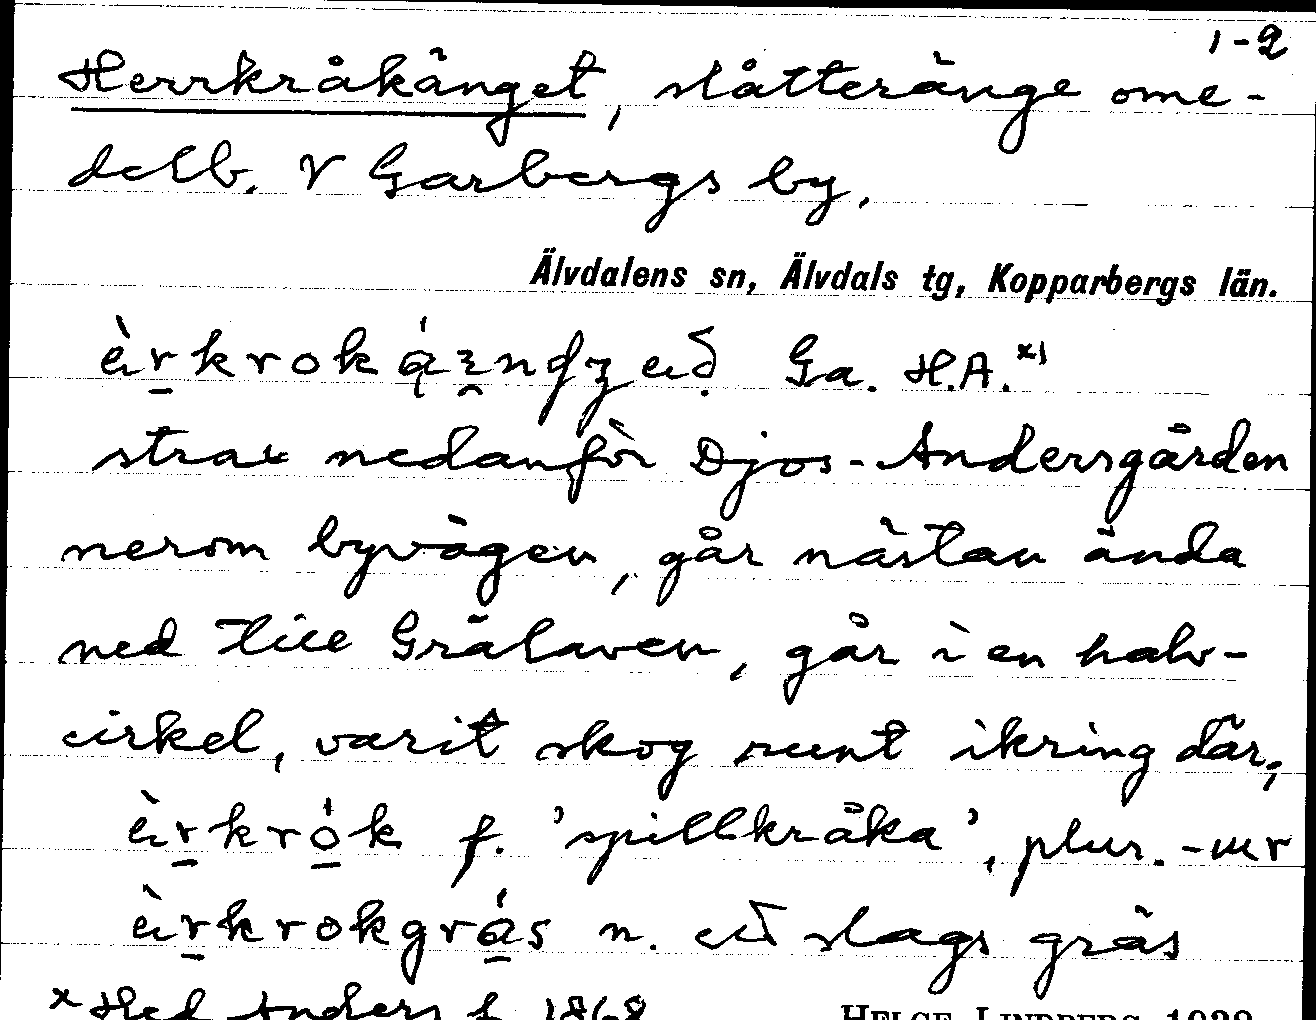 1-2
Herrkråkänget, slåtteränge ome-
delb. V Garbergs by.
Älvdalens sn, Älvdals tg, Kopparbergs län.
Ga. H.A.x)
strax nedanför Djos-Andersgården
nerom byvägen, går nästan ända
ned till Grälaven, går i en halv-
cirkel, varit skog runt ikring där;
èrkrók f. 'spillkråka', plur. -ur
èrkrokgrás n. ett slags gräs
x Hed Anders f. 1868
HELGE LINDBERG 1939